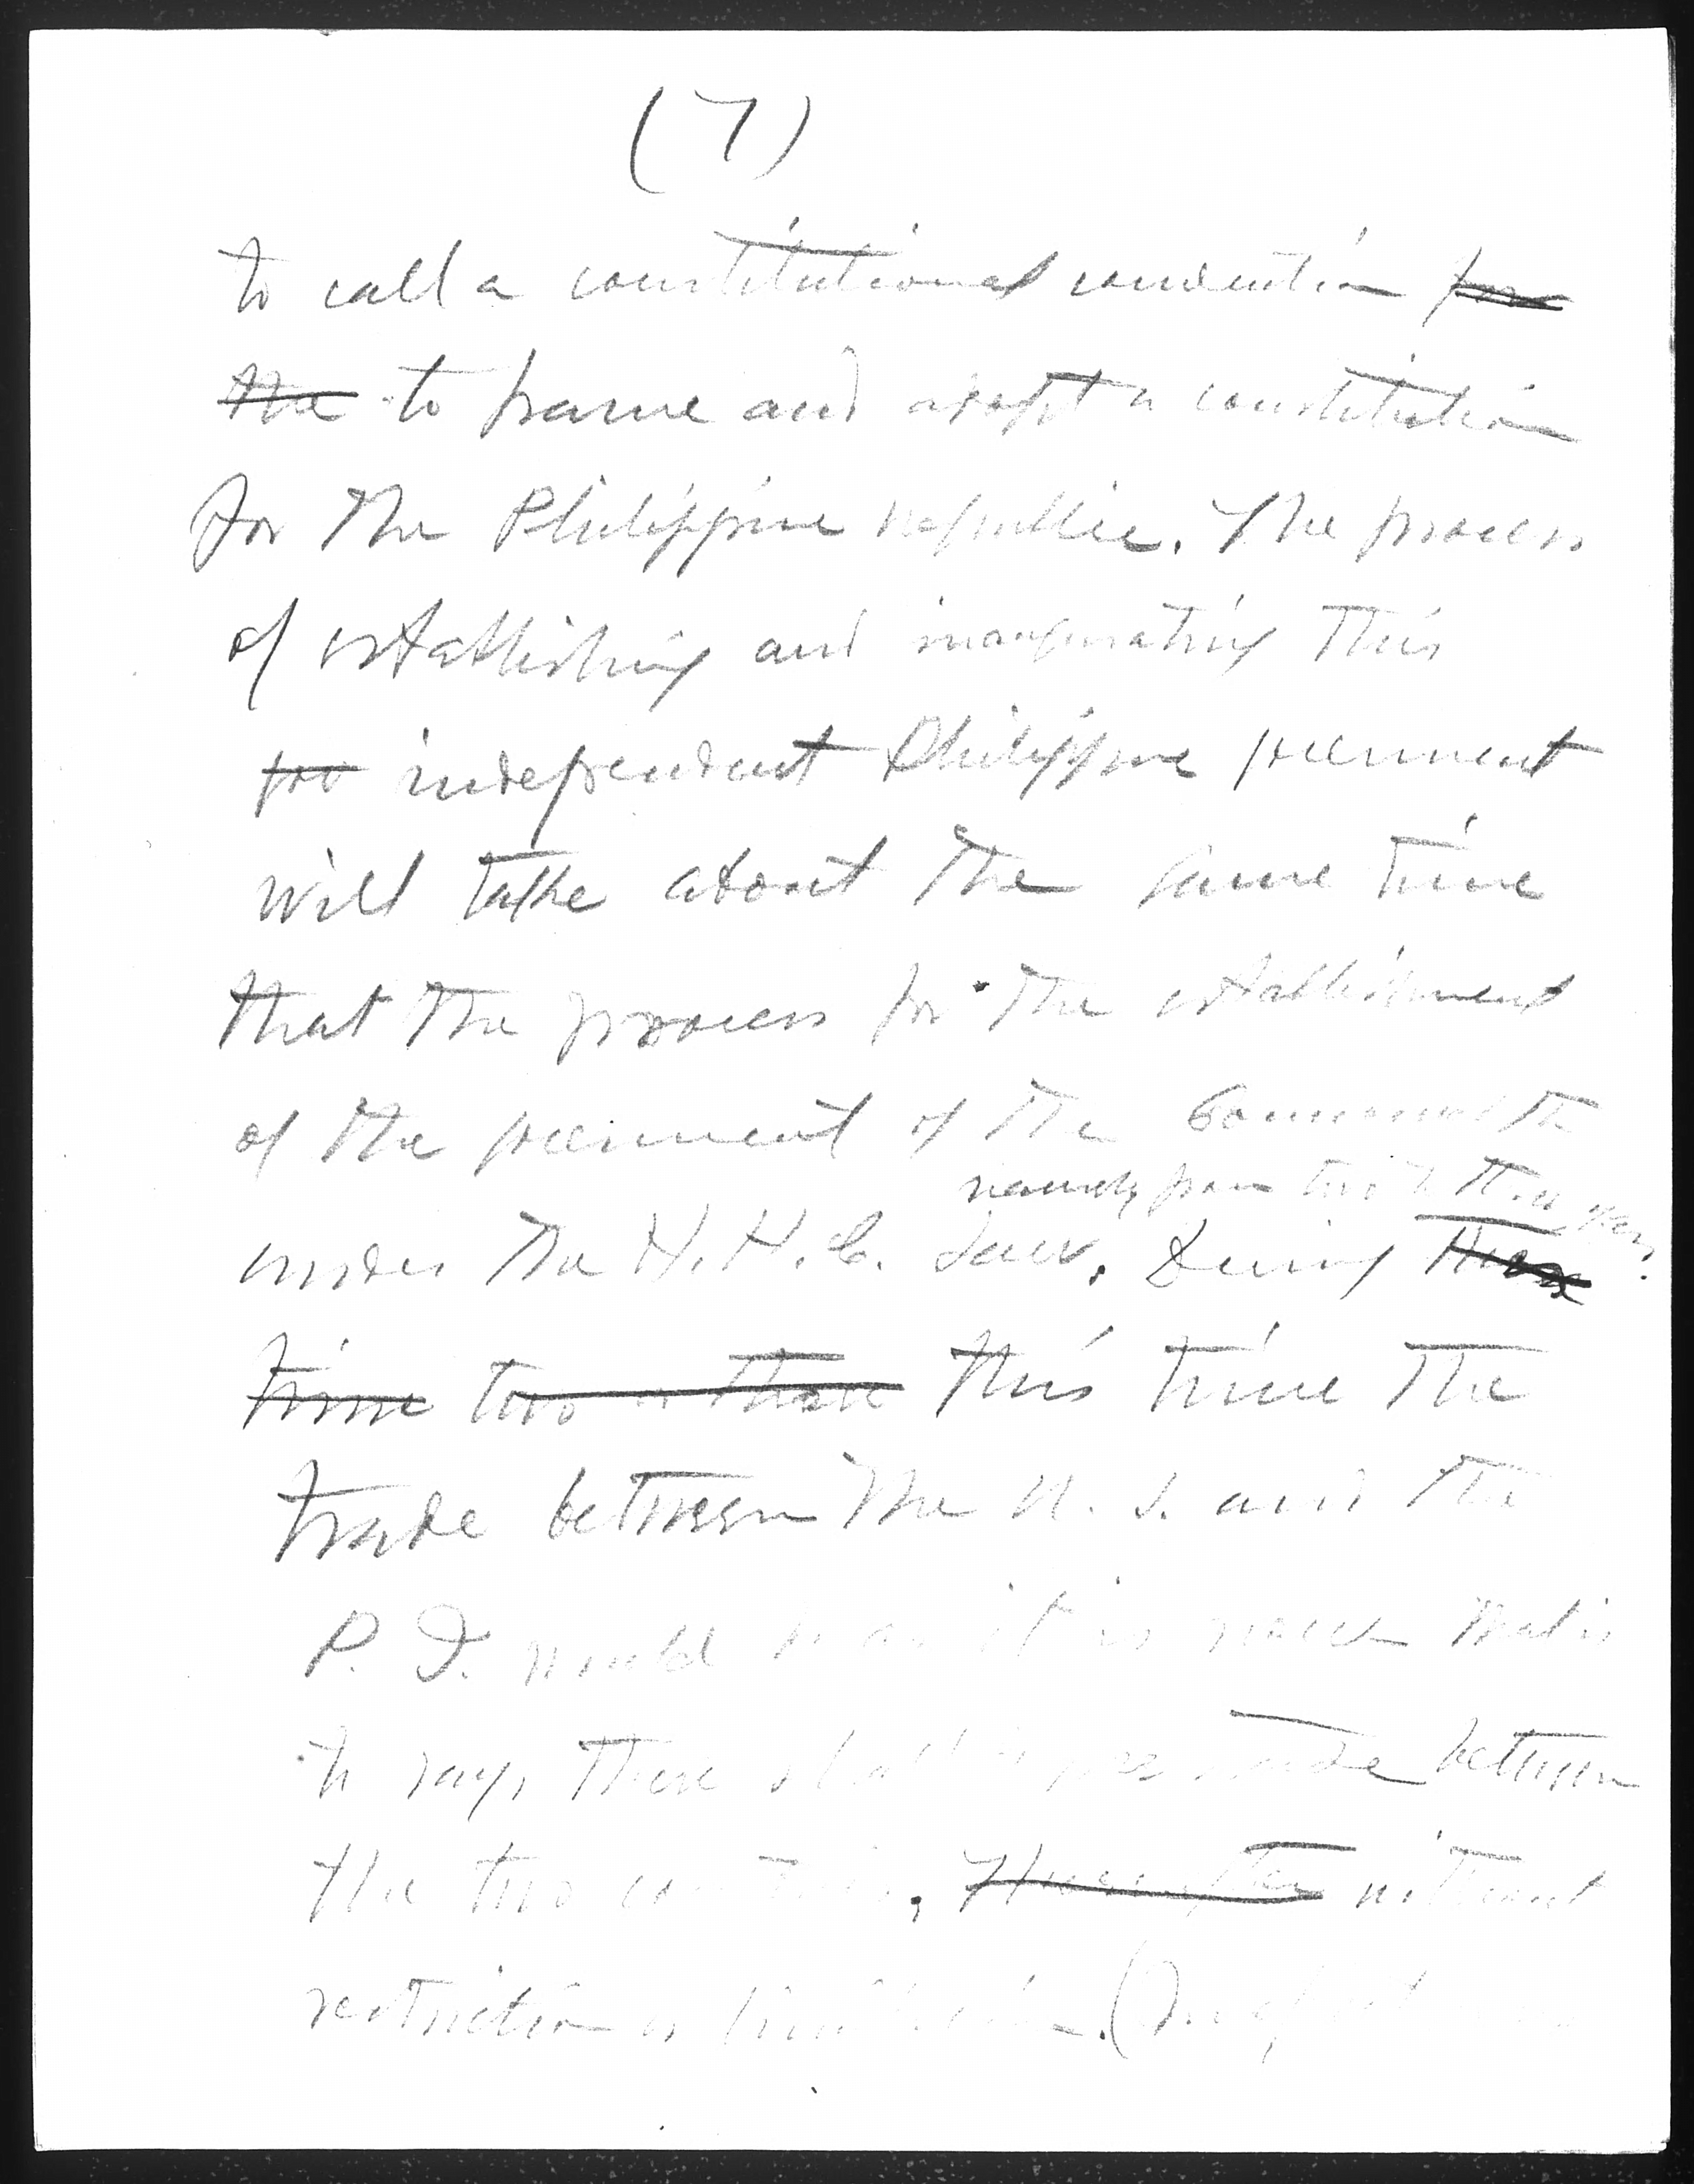 (7)
to call a constitutional convention for
the to frame and adopt a constitution
for the Philippine republic. The process
of establishing and inaugurating this
independent Philippine government
will take about the same time
that the process for the establishment
of the government of the Commonwealth
namely from two to three years.
under the H. H. C. Law. During these
time two or three this time the
trade between the U. S. and the
P. I. would be as it is now that is
to say, there shall be free trade between
the two countries, Thereafter without
restriction or limitation. (